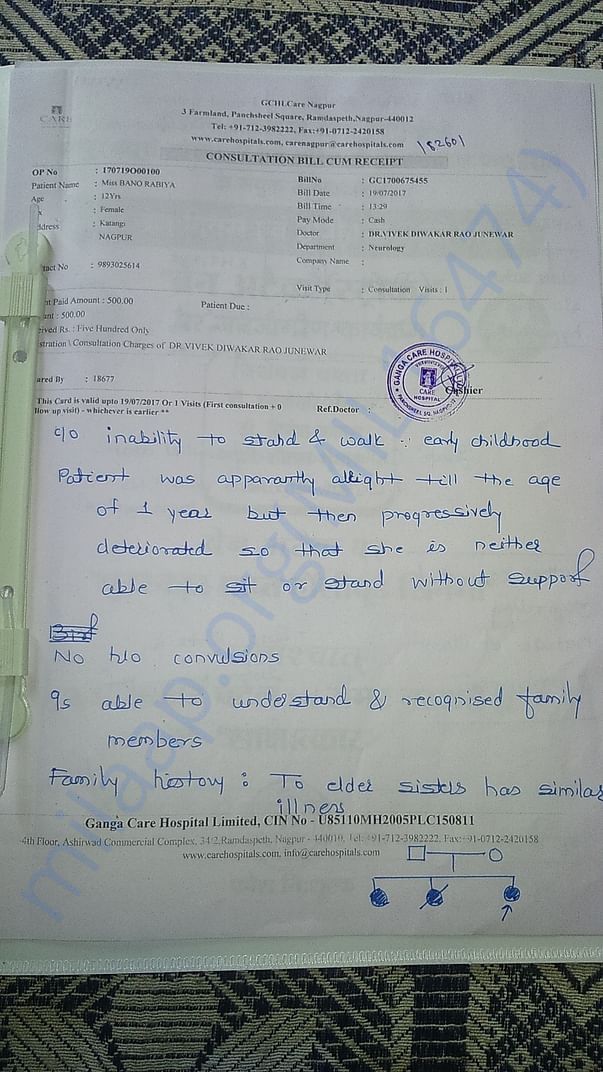 GCHLCare Nagpur
3 Farmland, Panchsheel Square, Ramdaspeth, Nagpur-440012
Tel: +91-712-3982222, Fax:+91-0712-2420158
www.carehospitals.com, carenagpur@carehospitals.com
182601
CARE
CONSULTATION BILL CUM RECEIPT
OP No : 170719O00100
BillNo : GC1700675455
Patient Name : Miss BANO RABIYA
Bill Date : 19/07/2017
Age : 12Yrs
Bill Time : 13:29
x : Female
Pay Mode : Cash
ddress : Katangi
Doctor : DR.VIVEK DIWAKAR RAO JUNEWAR
NAGPUR
Department : Neurology
Company Name :
tact No : 9893025614
Visit Type : Consultation Visits : 1
nt Paid Amount : 500.00
Patient Due :
unt : 500.00
eived Rs. : Five Hundred Only
stration \ Consultation Charges of DR VIVEK DIWAKAR RAO JUNEWAR
GANGA CARE HOSPITAL
CARE
HOSPITAL
PANCHSHEEL SQ. NAGPUR
Cashier
ared By : 18677
This Card is valid upto 19/07/2017 Or 1 Visits (First consultation + 0
llow up visit) - whichever is earlier **
Ref.Doctor :
c/o inability to stand & walk ∵ early childhood
Patient was apparantly allright till the age
of 1 year but then progressively
deteriorated so that she is neither
able to sit or stand without support
No h/o convulsions
Is able to understand & recognised family
members
Family history : To elder sisters has similar
illness
Ganga Care Hospital Limited, CIN No - U85110MH2005PLC150811
4th Floor, Ashirwad Commercial Complex, 34/2,Ramdaspeth, Nagpur - 440010, Tel: +91-712-3982222, Fax:+91-0712-2420158
www.carehospitals.com, info@carehospitals.com
milaap.org(MIL16474)